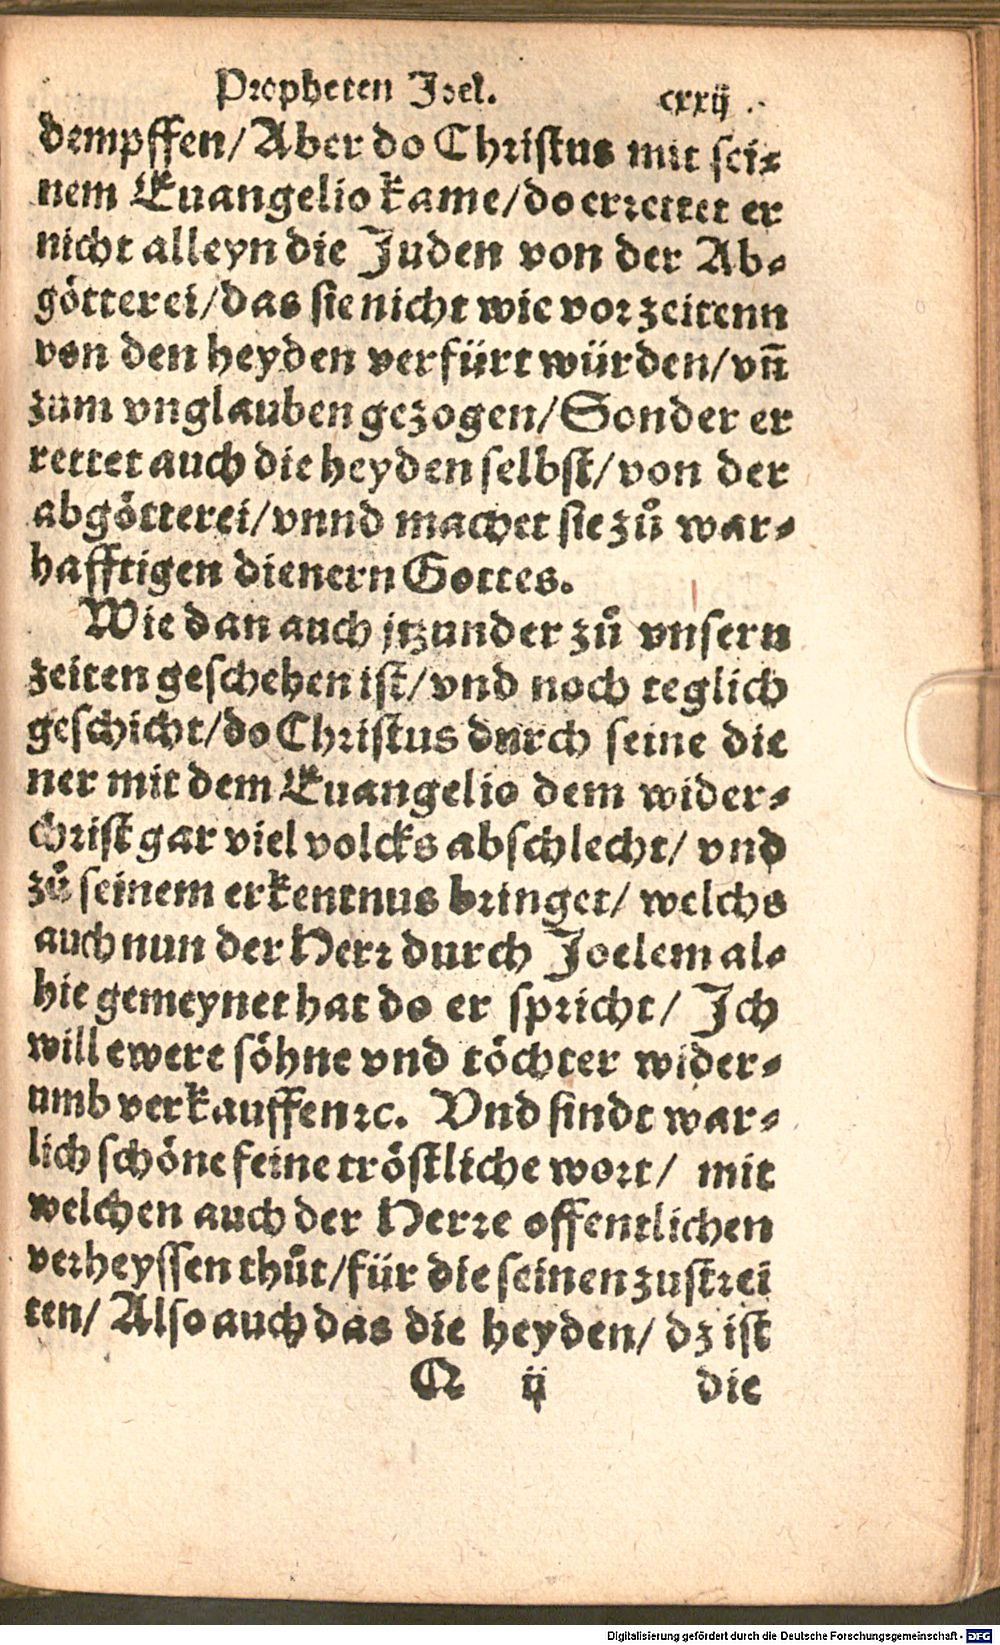 Propheten Joel. cxxij.
dempffen/ Aber do Christus mit sei⸗
nem Euangelio kame/ do errettet er
nicht alleyn die Juden von der Ab⸗
götterei/ das sie nicht wie vor zeitenn
von den heyden verfürt würden/ vn̄
zum vnglauben gezogen/ Sonder er
rettet auch die heyden selbst/ von der
abgötterei/ vnnd machet sie zů war⸗
hafftigen dienern Gottes.
Wie dan auch jtzunder zů vnsern
zeiten geschehen ist/ vnd noch teglich
geschicht/ do Christus durch seine die
ner mit dem Euangelio dem wider⸗
christ gar viel volcks abschlecht/ vnd
zů seinem erkentnus bringet/ welchs
auch nun der Herr durch Joelem al⸗
hie gemeynet hat do er spricht/ Jch
will ewere söhne vnd töchter wider⸗
umb verkauffen ꝛc. Vnd sindt war⸗
lich schöne feine tröstliche wort/ mit
welchen auch der Herre offentlichen
verheyssen thůt/ für die seinen zustrei
ten/ Also auch das die heyden/ dz ist
Q ij die
Digitalisierung gefördert durch die Deutsche Forschungsgemeinschaft - DFG